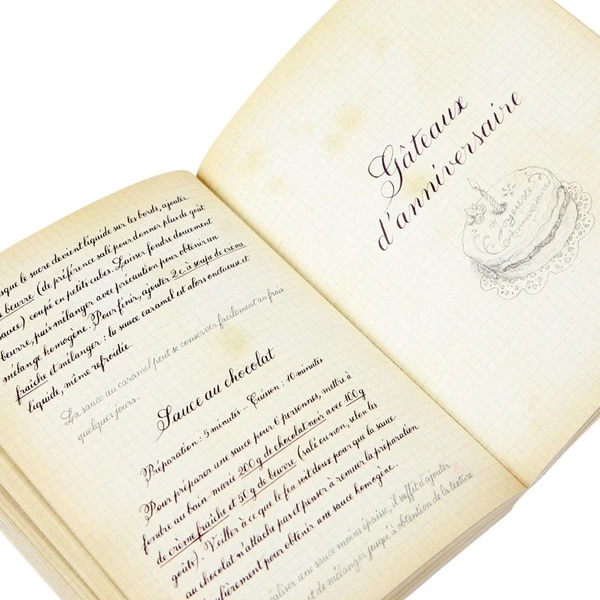 sque le sucre devient liquide sur les bords, ajouter
beurre (de préférence salé pour donner plus de goût
sauce) coupé en petits cubes. Laisser fondre doucement
beurre, puis mélanger avec précaution pour obtenir un
mélange homogène. Pour finir, ajouter 2 c. à soupe de crème
fraîche et mélanger : la sauce caramel est alors onctueuse et
liquide, même refroidie.
La sauce au caramel peut se conserver facilement au frais
quelques jours.
Sauce au chocolat
Préparation : 5 minutes - Cuisson : 10 minutes
Pour préparer une sauce pour 6 personnes, mettre à
fondre au bain-marie 200g de chocolat noir avec 100g
de crème fraîche et 50g de beurre (salé ou non, selon les
goûts). Veiller à ce que le feu soit doux pour que la sauce
au chocolat n'attache pas et penser à remuer la préparation
ulièrement pour obtenir une sauce homogène.
aliser une sauce moins épaisse, il suffit d'ajouter
et de mélanger jusqu'à obtention de la texture
Gâteaux
d'anniversaire
Anniversaire